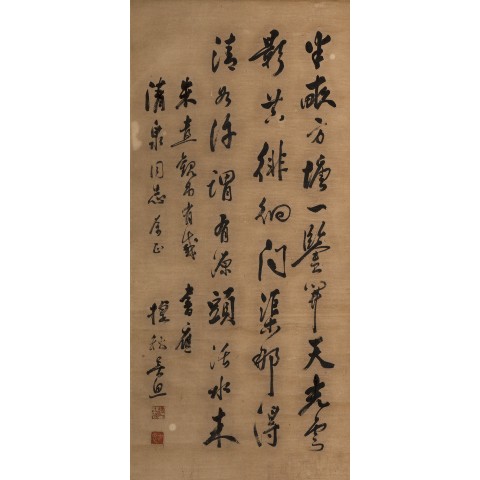 半畝方塘一鑒開天光雲
影共徘徊問渠那得
清如許謂有源頭活水來
朱熹觀書有感 書應
清泉同志